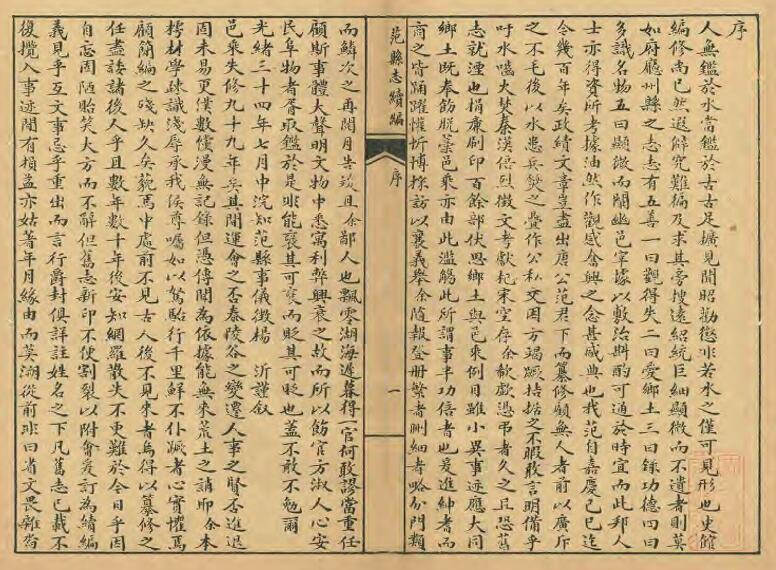 序
人無鑑於水當鑑於古古足擴見聞昭勸懲非若水之僅可見形也史館
編修尚已然遐歸究難徧及求其旁搜遠紹統巨細顯微而不遺者則莫
如府廳州縣之志志有五善一曰觀得失二曰愛鄉土三曰錄功德四曰
多識名物五曰顯微而闡幽邑宰據以敷治斟酌可通於時宜而此邦人
士亦得資所考據油然作觀感奮興之念甚盛典也我范自嘉慶己巳迄
今幾百年矣政績文章豈盡出唐公范君下而纂修顧無人者前以廣斥
之不毛後以水患兵燹之疊作公私交困方竭蹶拮据之不暇敢言明備乎
吁水嚙火焚秦漢倍烈徵文考獻杞宋空存余欷歔憑弔者久之且恐舊
志就湮也捐廉刷印百餘部伏思鄉土與邑乘例目雖小異事迹應大同
鄉土既奉飭脫藁邑乘亦由此濫觴此所謂事半功倍者也爰進紳耆而
商之皆踴躍懽忻博採訪以襄義舉余隨報登冊繁者刪細者略分門類
范縣志續編
序
一
而鱗次之再閱月告竣且余鄙人也飄零湖海遲暮得一官何敢謬當重任
顧斯事體大聲明文物中悉寓利弊興衰之故而所以飭官方淑人心安
民阜物者胥取鑑於是非能襃其可襃而貶其可貶也蓋不敢不勉爾
光緒三十四年七月中浣知范縣事儀徵楊 沂謹敘
邑乘失修九十九年矣其間運會之否泰陵谷之變遷人事之賢否進退
固未易更僕數慬漫無記錄但憑傳聞為依據能無來荒土之誚耶余本
樗材學疎識淺辱承我侯尊囑如以駑駘行千里鮮不仆蹶者心實懼焉
顧簡編之殘缺久矣蒞馬中處前不見古人後不見來者烏得以纂修之
任盡諉諸後人乎且數年數十年後安知網羅散失不更難於今日乎因
自忘固陋貽笑大方而不辭但舊志新印不便割裂以附會爰訂為續編
義見乎互文事忌乎重出而言行爵封俱詳註姓名之下凡舊志已載不
復攙入事迹間有損益亦姑著年月緣由而莫溯從前非曰省文畏雜沓